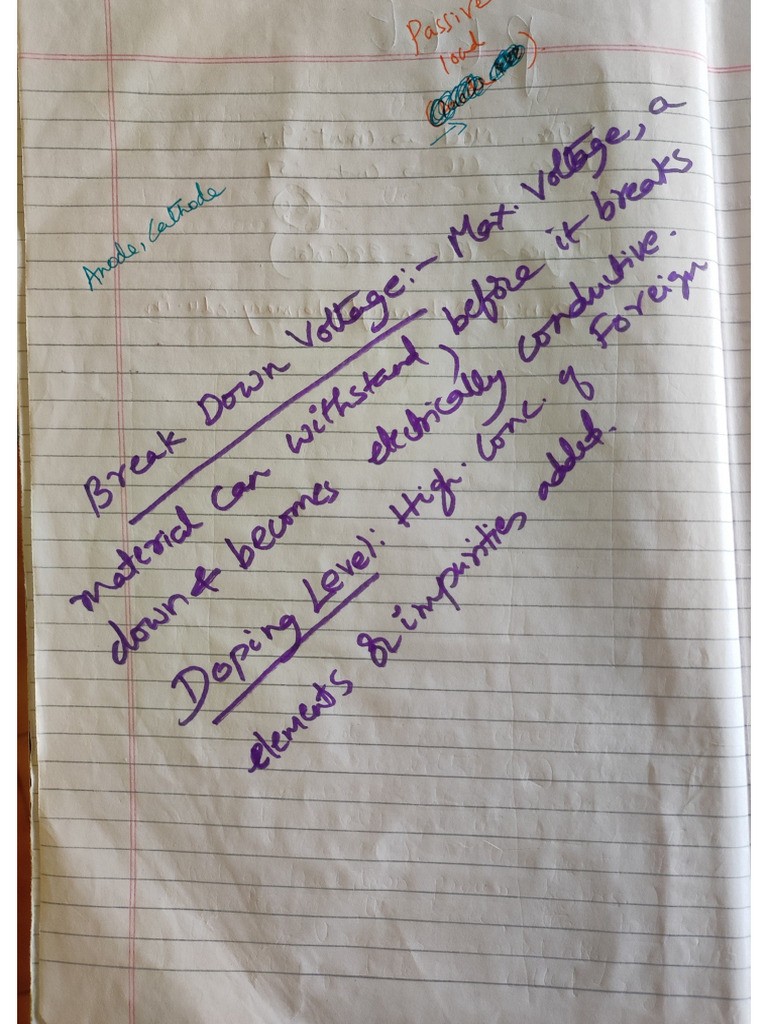 Passive
load
Anode, Cathode
Break Down Voltage:- Max. Voltage, a
material can withstand, before it breaks
down & becomes electrically conductive.
Doping Level: High. Conc. of Foreign
elements or impurities added.